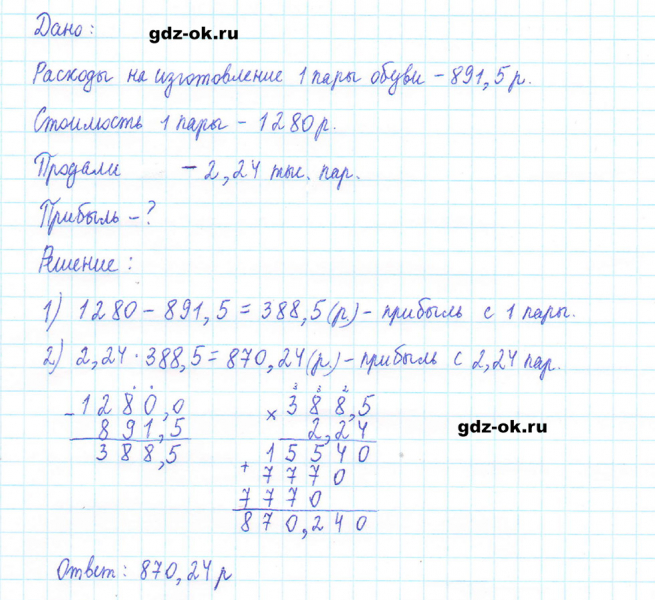 Дано:
gdz-ok.ru
Расходы на изготовление 1 пары обуви – 891,5 р.
Стоимость 1 пары – 1280 р.
Продали – 2,24 тыс. пар.
Прибыль – ?
Решение:
1) 1280 – 891,5 = 388,5 (р.) – прибыль с 1 пары.
2) 2,24 · 388,5 = 870,24 (р.) – прибыль с 2,24 пар.
3 3 2
– 1280,0 × 388,5
891,5 2,24
388,5 15540
gdz-ok.ru
+ 7770
7770
870,240
Ответ: 870,24 р